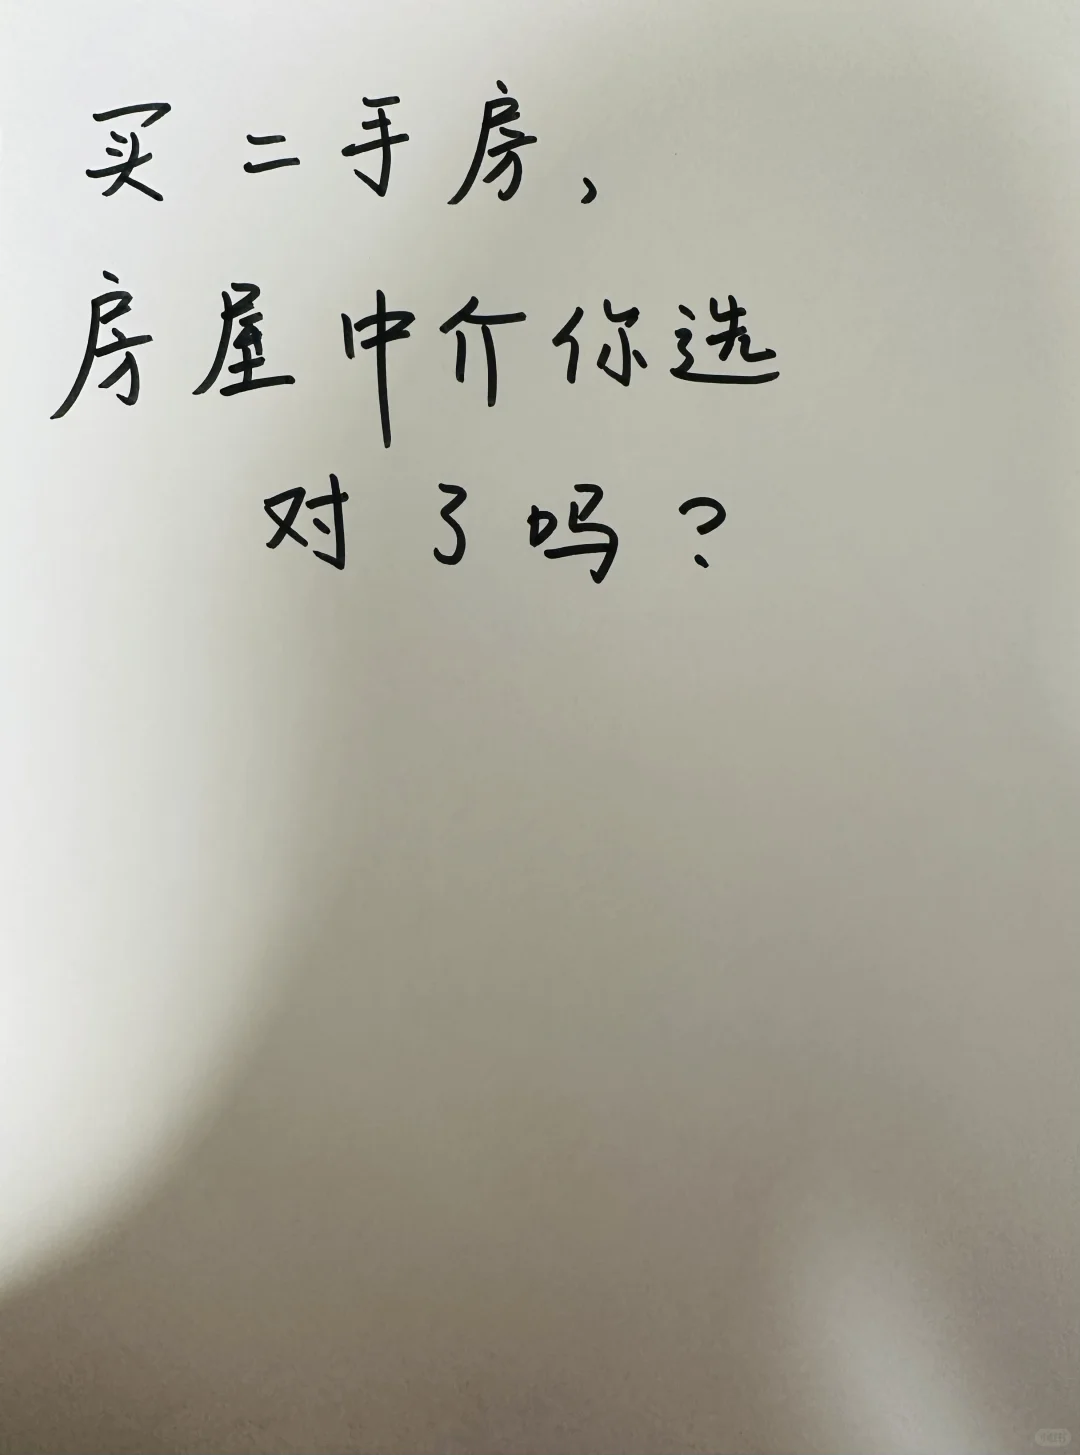 买二手房，
房屋中介你选
对了吗？